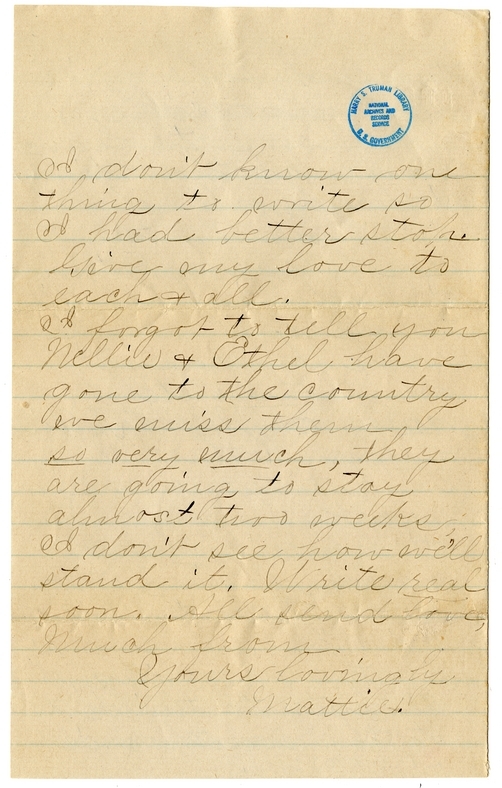 HARRY S. TRUMAN LIBRARY
NATIONAL
ARCHIVES AND
RECORDS
SERVICE
U. S. GOVERNMENT
I don't know one
thing to write so
I had better stop.
Give my love to
each & all.
I forgot to tell you
Nellie & Ethel have
gone to the country
we miss them
so very much, they
are going to stay
almost two weeks,
I don't see how we'll
stand it. Write real
soon. All send love,
Much from
Yours lovingly
Mattie.